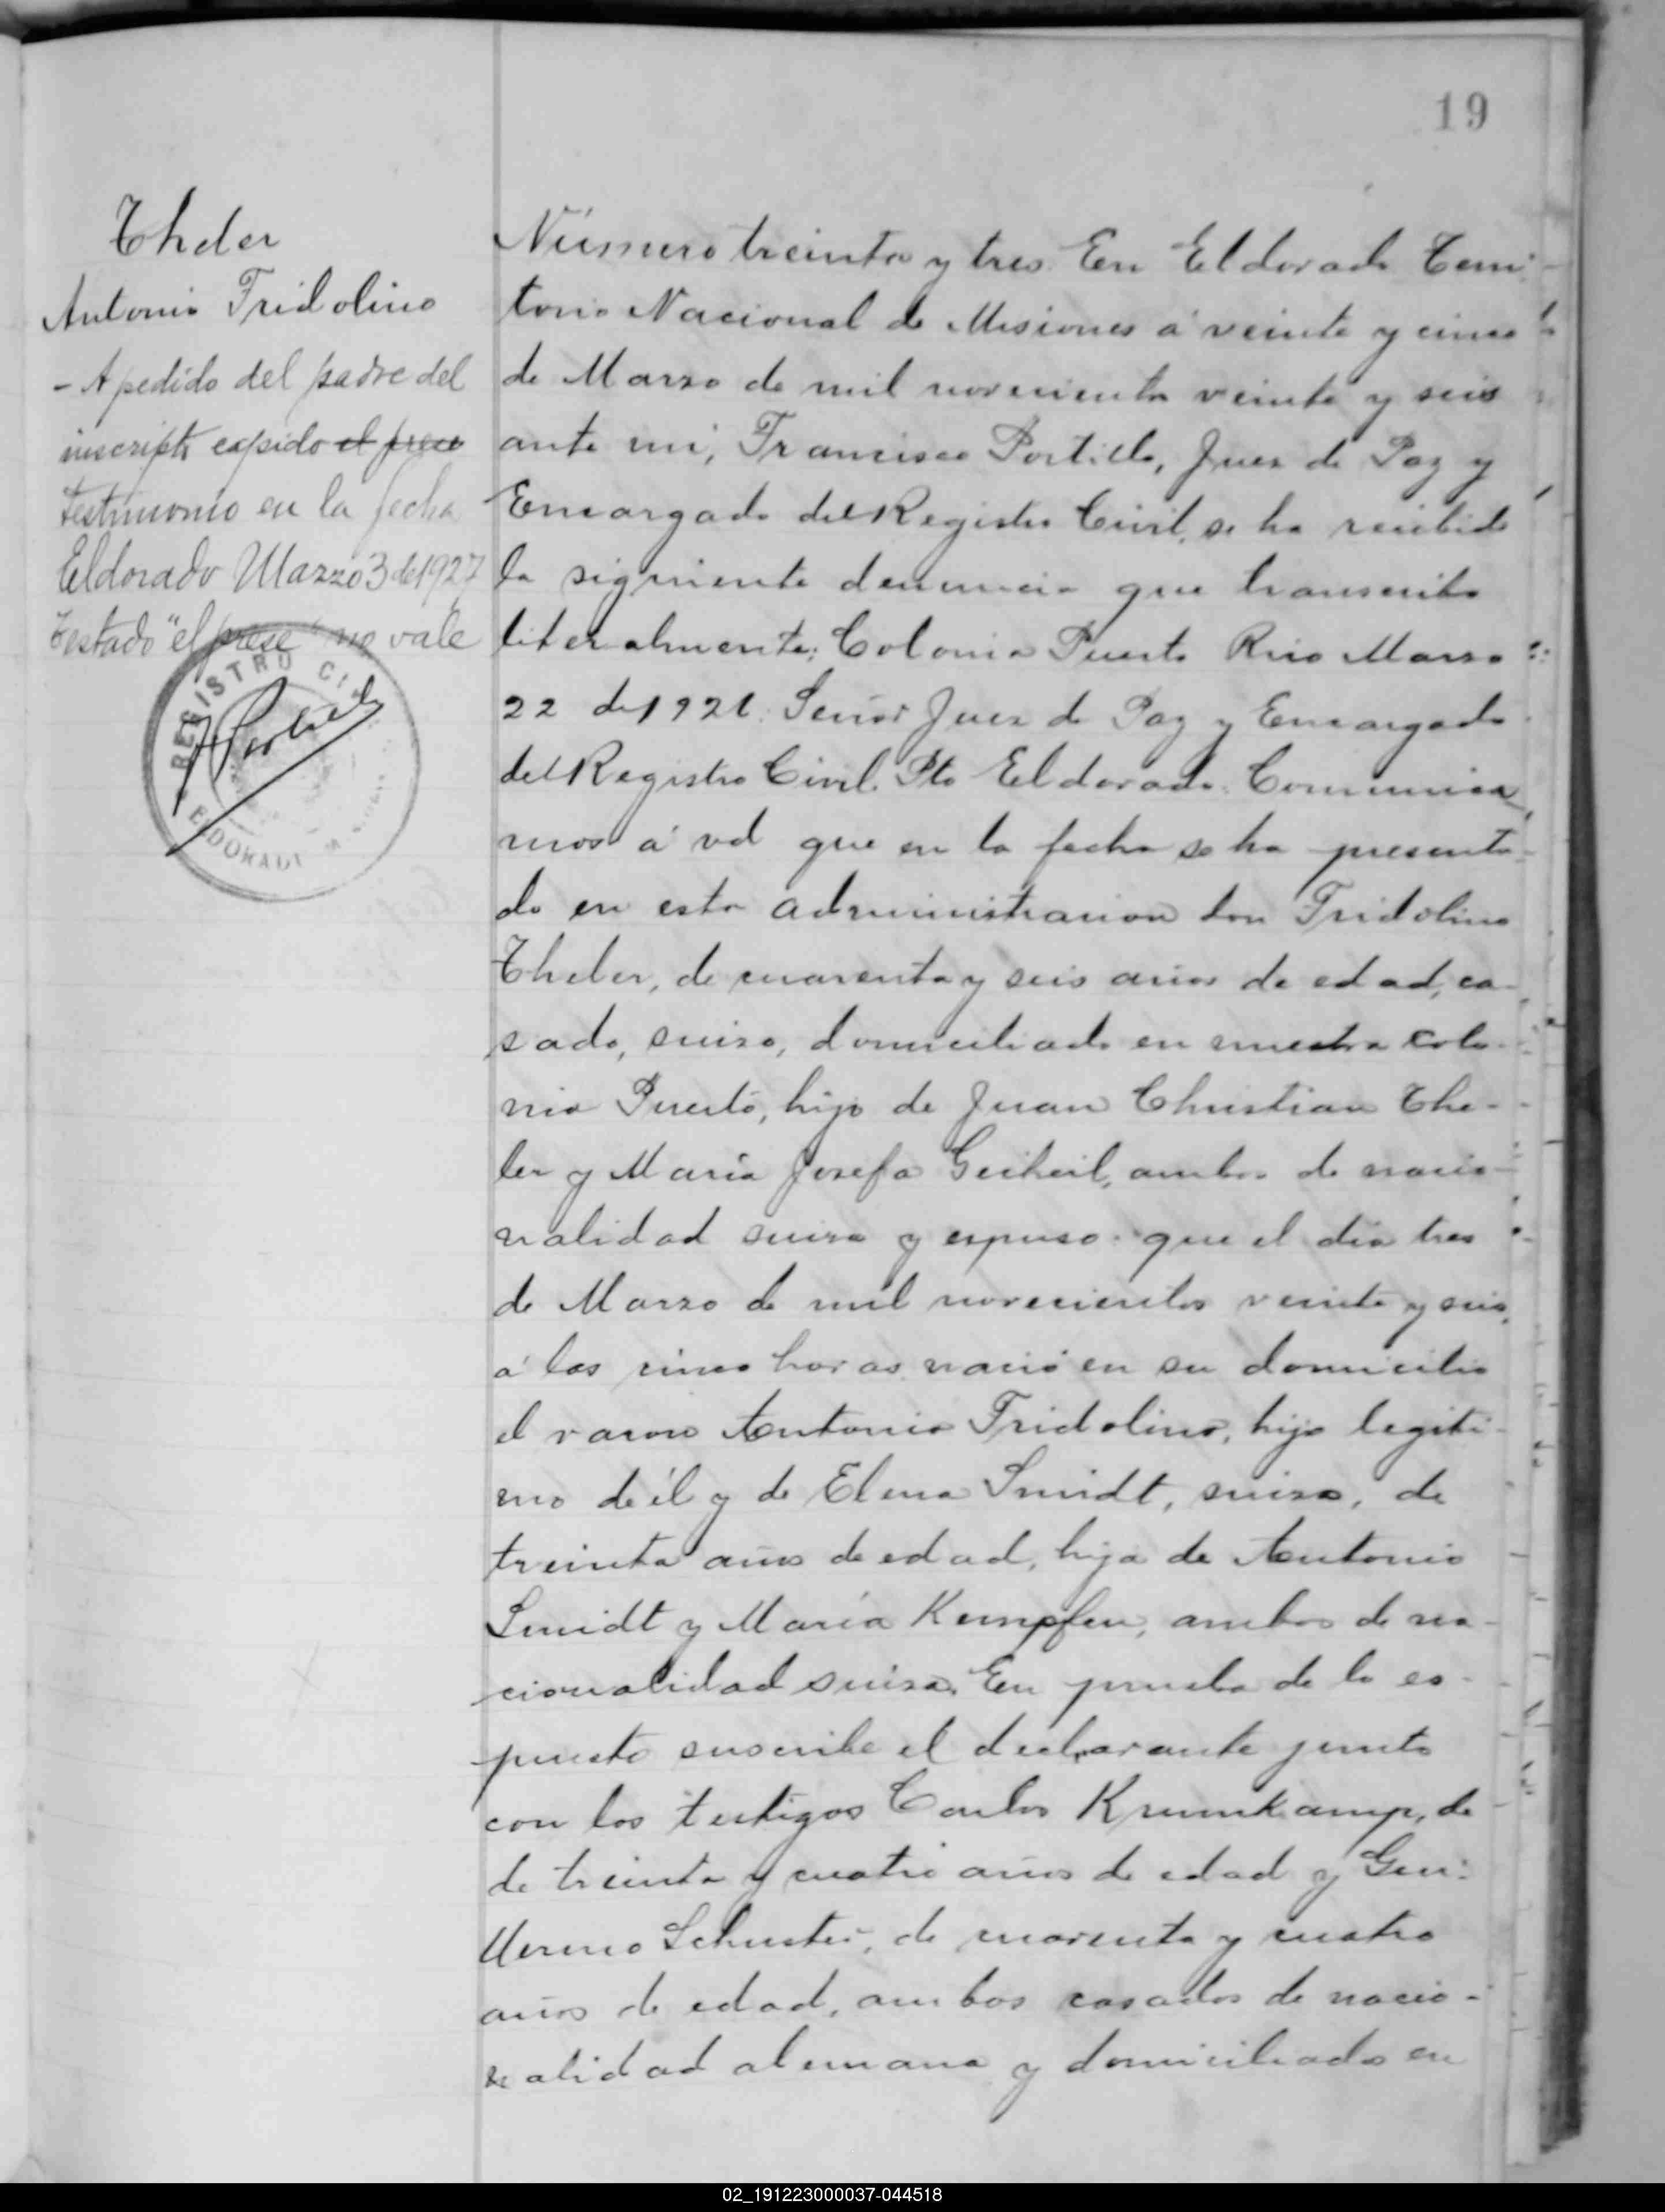 19
Theler
Antonio Fridolino
- A pedido del padre del
inscripto expido el prese
testimonio en la fecha
Eldorado Marzo 3 de 1927
Testado "el prese" no vale
REGISTRO CIVIL
ELDORADO
Número treinta y tres. En Eldorado Terri-
torio Nacional de Misiones á veinte y cinco
de Marzo de mil novecientos veinte y seis
ante mi, Francisco Portillo, Juez de Paz y
Encargado del Registro Civil, se ha recibido
la siguiente denuncia que transcribo
literalmente: Colonia Puerto Rico Marzo
22 de 1926. Señor Juez de Paz y Encargado
del Registro Civil. Pto Eldorado. Comunica
mos á vd que en la fecha se ha presenta-
do en esta administracion don Fridolino
Theler, de cuarenta y seis años de edad, ca-
sado, suizo, domiciliado en nuestra colo-
nia Puerto, hijo de Juan Christian The-
ler y María Josefa, ambos de nacio-
nalidad suiza y espuso: que el dia tres
de Marzo de mil novecientos veinte y seis,
á las cinco horas nació en su domicilio
el varon Antonio Fridolino, hijo legiti-
mo de él y de Elena Smidt, suiza, de
treinta años de edad, hija de Antonio
Smidt y María Kempfen, ambos de na-
cionalidad suiza. En prueba de lo es-
puesto suscribe el declarante junto
con los testigos Carlos Krumkamp, de
de treinta y cuatro años de edad y Gui-
llermo Schuster, de cuarenta y cuatro
años de edad, ambos casados de nacio-
nalidad alemana y domiciliados en
02_191223000037-044518